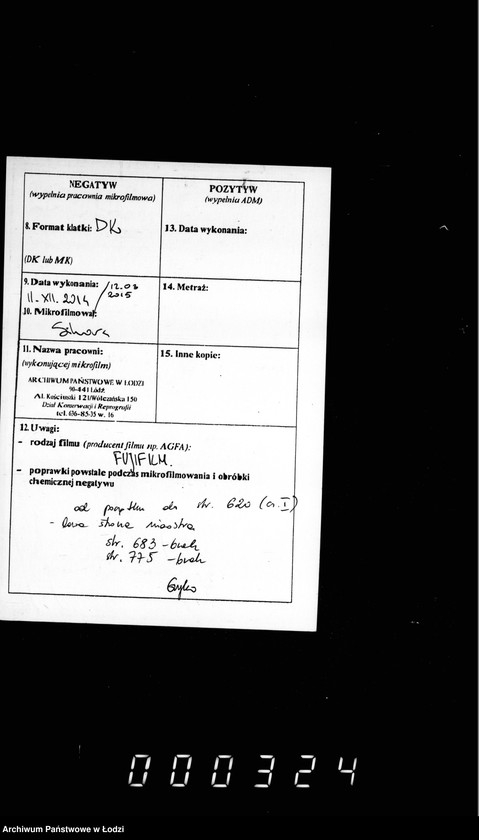 NEGATYW
(wypełnia pracownia mikrofilmowa)
8. Format klatki: DK
(DK lub MK)
9. Data wykonania: /12.03
11.XII.2014 2015
10. Mikrofilmował:
11. Nazwa pracowni:
(wykonującej mikrofilm)
ARCHIWUM PAŃSTWOWE W ŁODZI
90-441 Łódź
Al. Kościuszki 121/Wólczańska 150
Dział Konserwacji i Reprografii
tel. 636-85-35 w. 16
POZYTYW
(wypełnia ADM)
13. Data wykonania:
14. Metraż:
15. Inne kopie:
12. Uwagi:
- rodzaj filmu (producent filmu np. AGFA):
FUJIFILM.
- poprawki powstałe podczas mikrofilmowania i obróbki
chemicznej negatywu
od początku do str. 620 (cz. I)
- lewa strona nieostra
str. 683 - brak
str. 775 - brak
000324
Archiwum Państwowe w Łodzi